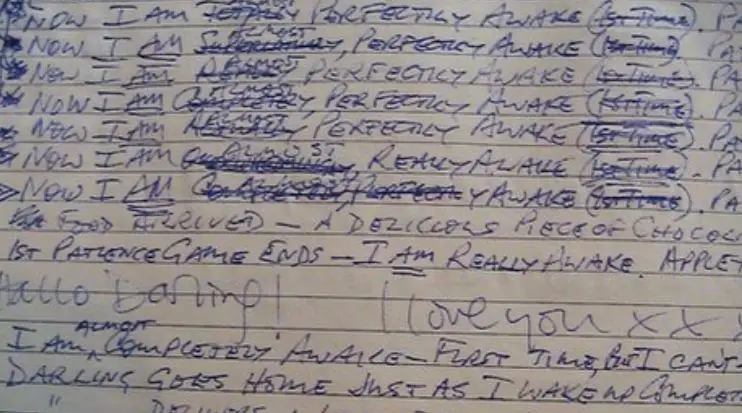 NOW I AM PERFECTLY AWAKE (1ST TIME). PA
NOW I AM ALMOST, PERFECTLY AWAKE (1ST TIME). PA
NOW I AM ALMOST PERFECTLY AWAKE (1ST TIME). PA
NOW I AM ALMOST COMPLETELY, PERFECTLY AWAKE (1ST TIME). PA
NOW I AM ALMOST PERFECTLY AWAKE (1ST TIME). PA
NOW I AM ALMOST, REALLY AWAKE (1ST TIME). PA
NOW I AM ALMOST, PERFECTLY AWAKE (1ST TIME). PA
FOOD ARRIVED — A DELICIOUS PIECE OF CHOCOL
1ST PATIENCE GAME ENDS — I AM REALLY AWAKE. APPLET
Hallo Darling! I love you x x x
I AM ALMOST COMPLETELY AWAKE — FIRST TIME, BUT I CAN'T
DARLING GOES HOME JUST AS I WAKE UP COMPLET
"